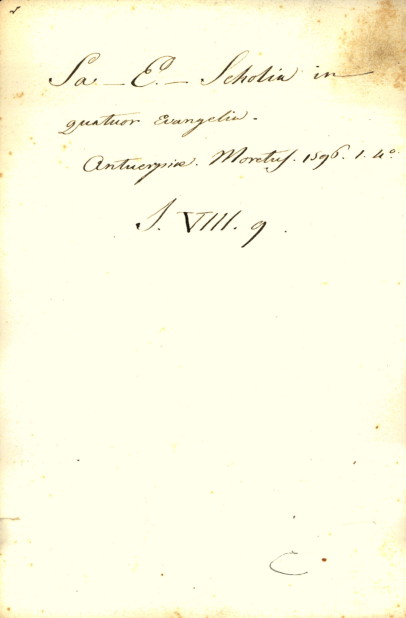 Sa — E. — Scholia in
quatuor Evangelia.
Antuerpiæ. Moretus. 1596. 1. 4º
S. VIII. 9.
C